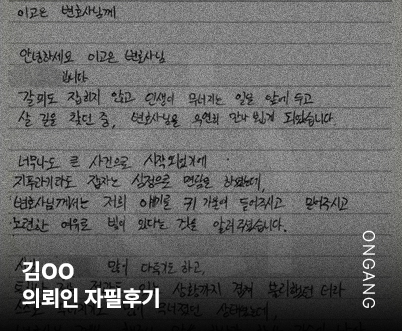 이고은 변호사님께
안녕하세요 이고은 변호사님
입니다
갈피도 잡히지 않고 인생이 무너지는 일을 앞에 두고
살 길을 찾던 중, 변호사님을 우연히 만나 뵙게 되었습니다.
너무나도 큰 사건으로 시작되었기에
지푸라기라도 잡자는 심정으로 면담을 하였는데,
변호사님께서는 저희 얘기를 귀 기울여 들어주시고 믿어주시고
노련한 여유로 빛이 있다는 것을 알려주셨습니다.
많이 다축기도 하고,
상황까지 겹쳐 불리했던 터라
상태였는데,
김OO
의뢰인 자필후기
ONGANG